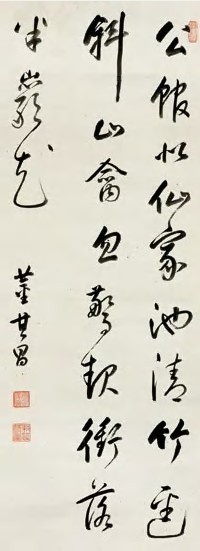 公館似仙家池清竹逕
斜山禽忽驚起衝落
半巖花
董其昌